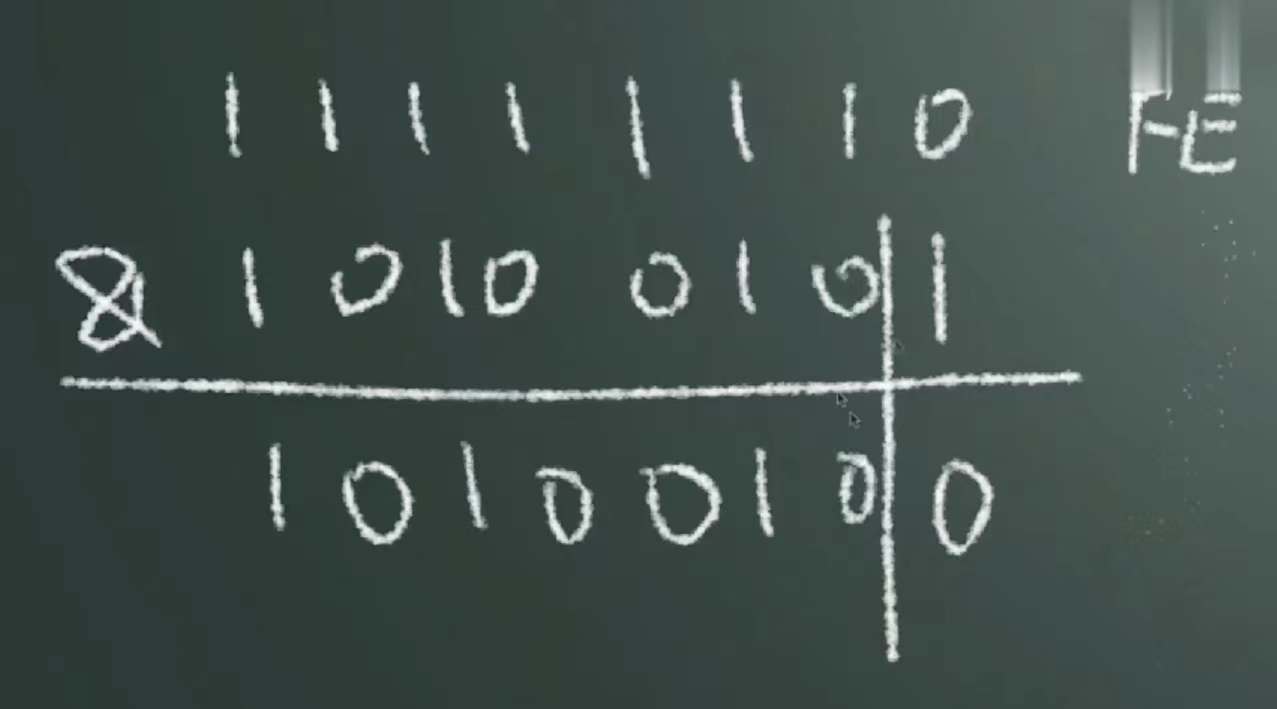 1 1 1 1 1 1 1 0 FE
& 1 0 1 0 0 1 0 1
1 0 1 0 0 1 0 0